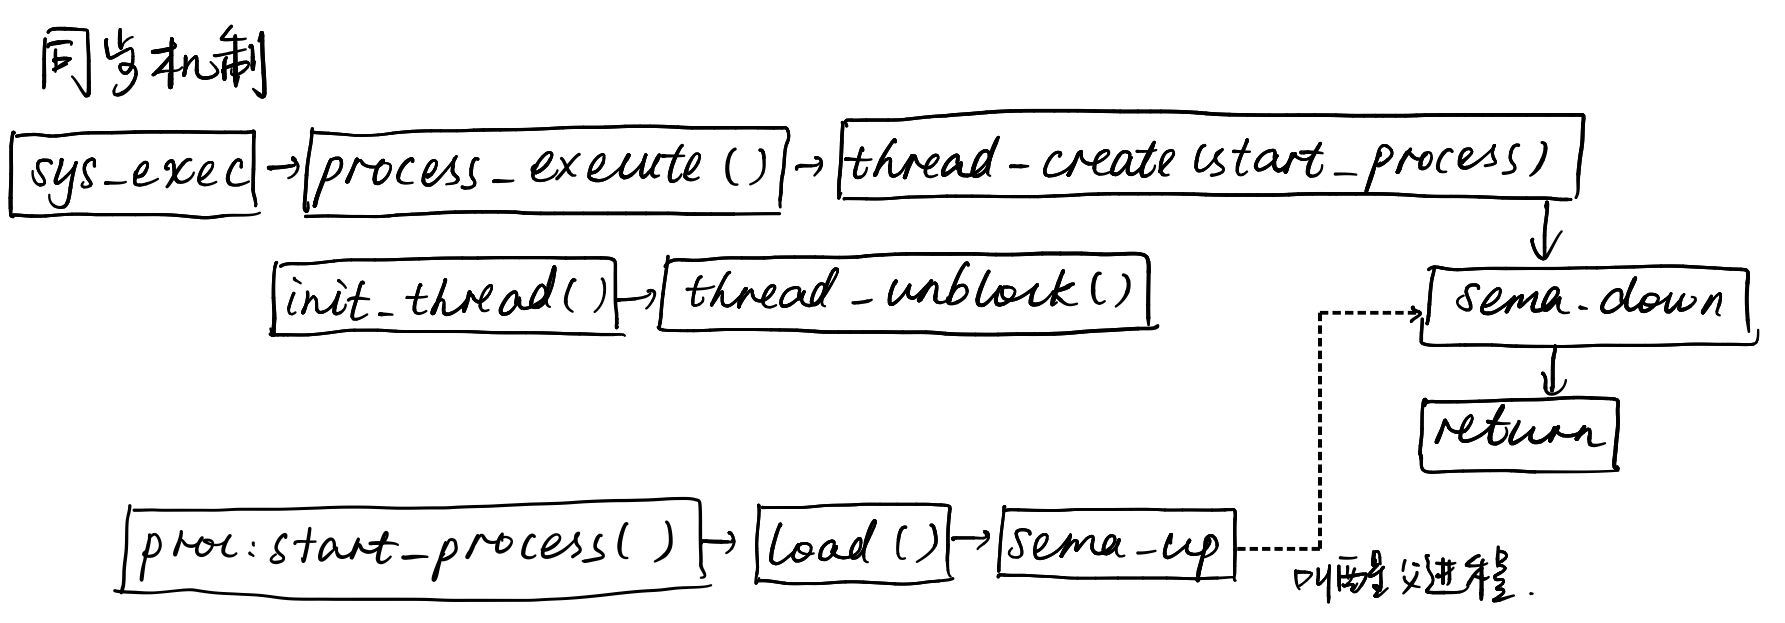 同步机制
sys_exec → process_execute() → thread-create(start_process)
init_thread() → thread_unblock()
sema-down
return
proc:start_process() → load() → sema-up
叫醒父进程.